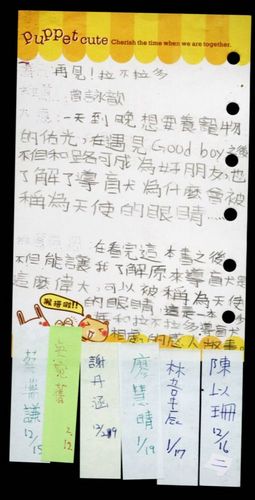 Puppet cute Cherish the time when we are together.
再見！拉不拉多
曾詠歆
一天到晚想要養寵物
的佑光，在遇見Good boy之後
不但和路可成為好朋友，也
了解了導盲犬為什麼會被
稱為天使的眼睛……
在看完這本書之後
不但能讓我了解原來導盲犬是
這麼偉大，可以被稱為天使
的眼睛，這是一本少
和拉不拉多導盲犬
相處的感人故事。
謙
12/15
2/12
謝丹涵
廖慧晴
1/19
林
1/17
陳以珊
12/16
二